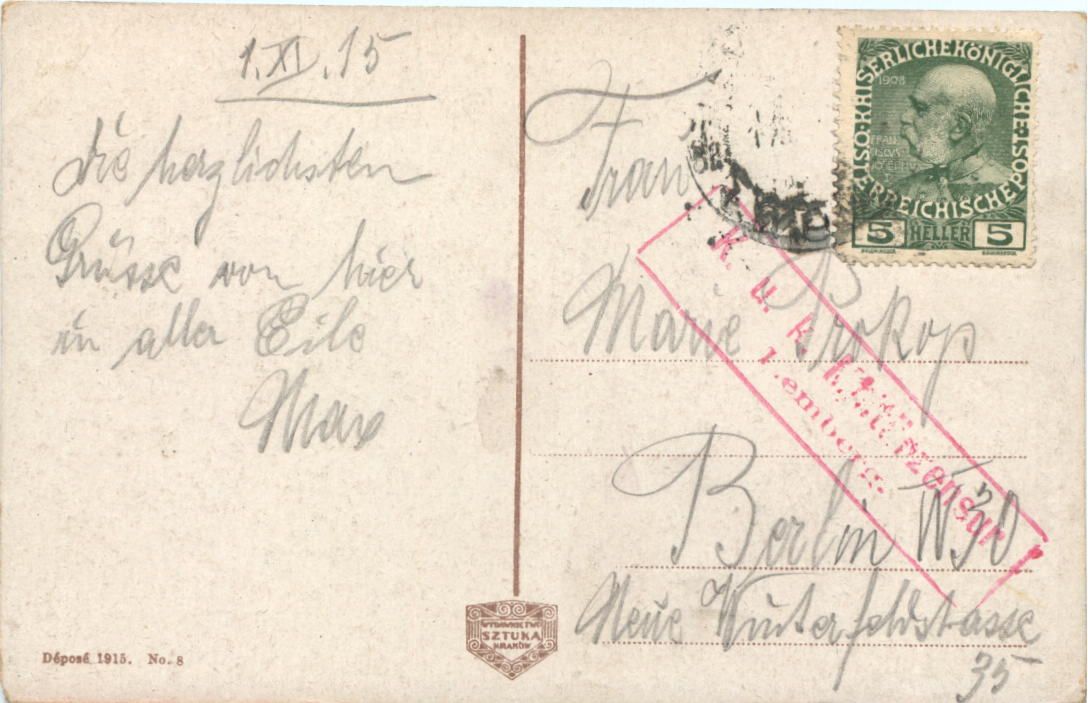 1.XI.15
die herzlichsten
Grüsse von hier
in aller Eile
Max
Déposé 1915. No. 8
WYDAWNICTWO
SZTUKA
KRAKÓW
KAISERLICHEKÖNIGLICHE·ÖSTERREICHISCHE·POST
1908
5 HELLER 5
Frau
Marie Prokop
Berlin W30
Neue Winterfeldstasse
35
K. u. k. Militärzensur
Lemberg.